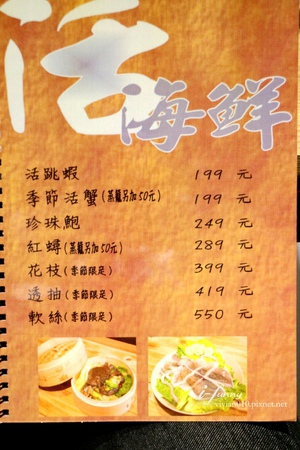 活
海鮮
活跳蝦 199 元
季節活蟹(蒸籠另加50元) 199 元
珍珠鮑 249 元
紅蟳(蒸籠另加50元) 289 元
花枝(季節限定) 399 元
透抽(季節限定) 419 元
軟絲(季節限定) 550 元